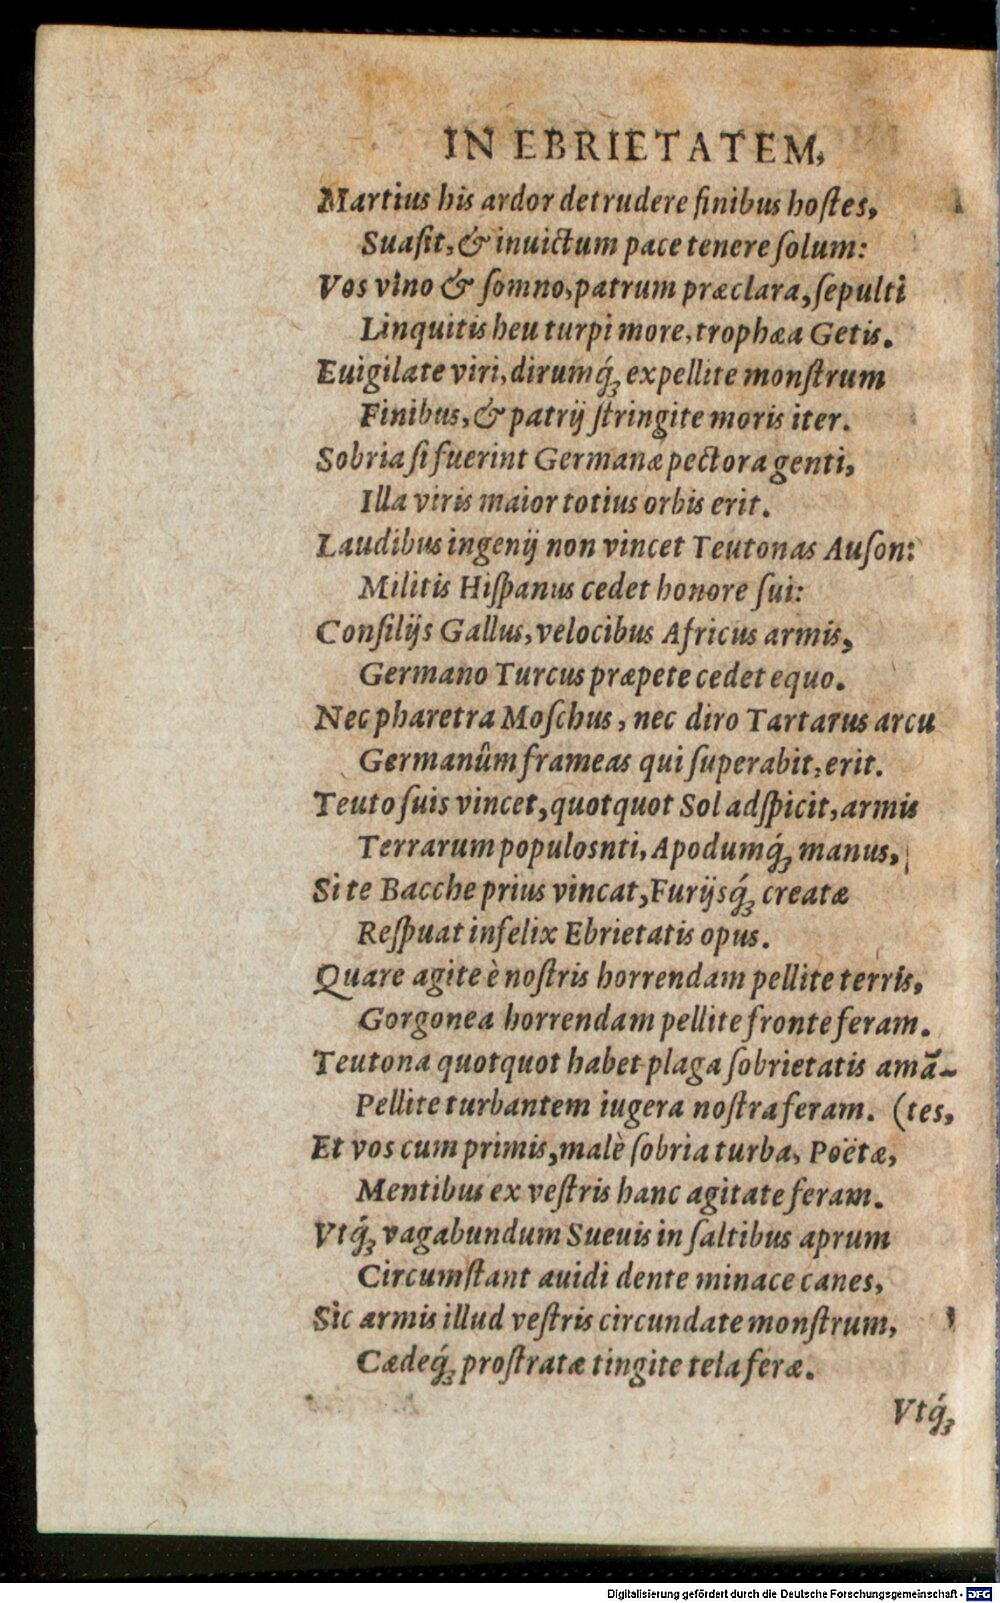 IN EBRIETATEM,
Martius his ardor detrudere finibus hoſtes,
Suaſit, & inuictum pace tenere ſolum:
Vos vino & ſomno, patrum præclara, ſepulti
Linquitis heu turpi more, trophæa Getis.
Euigilate viri, dirumq́ꝫ expellite monſtrum
Finibus, & patrij ſtringite moris iter.
Sobria ſi fuerint Germanæ pectora genti,
Illa viris maior totius orbis erit.
Laudibus ingenij non vincet Teutonas Auſon:
Militis Hiſpanus cedet honore ſui:
Conſilijs Gallus, velocibus Africus armis,
Germano Turcus præpete cedet equo.
Nec pharetra Moſchus, nec diro Tartarus arcu
Germanûm frameas qui ſuperabit, erit.
Teuto ſuis vincet, quotquot Sol adſpicit, armis
Terrarum populosnti, Apodumq́ꝫ manus,
Si te Bacche prius vincat, Furijsq́ꝫ creatæ
Reſpuat infelix Ebrietatis opus.
Quare agite è noſtris horrendam pellite terris,
Gorgonea horrendam pellite fronte feram.
Teutona quotquot habet plaga ſobrietatis amā-
Pellite turbantem iugera noſtra feram. (tes,
Et vos cum primis, malè ſobria turba, Poëtæ,
Mentibus ex veſtris hanc agitate feram.
Vtq́ꝫ vagabundum Sueuis in ſaltibus aprum
Circumſtant auidi dente minace canes,
Sic armis illud veſtris circundate monſtrum,
Cædeq́ꝫ proſtratæ tingite tela feræ.
Vtq́ꝫ
Digitalisierung gefördert durch die Deutsche Forschungsgemeinschaft - DFG